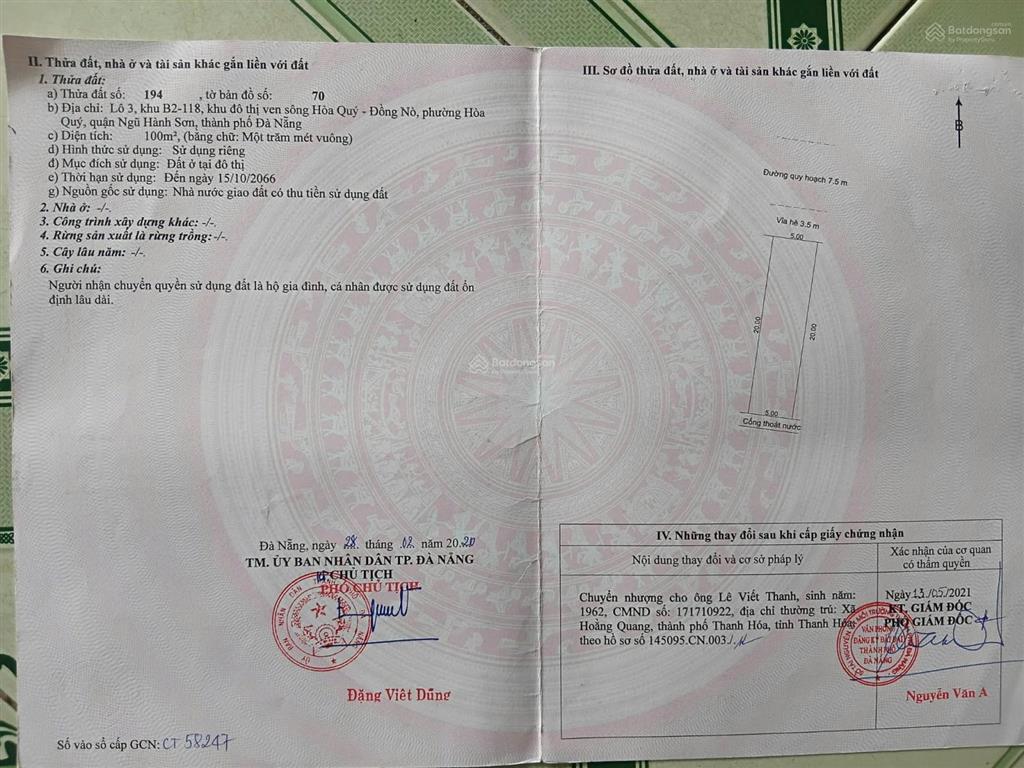 II. Thửa đất, nhà ở và tài sản khác gắn liền với đất
1. Thửa đất:
a) Thửa đất số: 194 , tờ bản đồ số: 70
b) Địa chỉ: Lô 3, khu B2-118, khu đô thị ven sông Hòa Quý - Đồng Nò, phường Hòa
Quý, quận Ngũ Hành Sơn, thành phố Đà Nẵng
c) Diện tích: 100m², (bằng chữ: Một trăm mét vuông)
d) Hình thức sử dụng: Sử dụng riêng
đ) Mục đích sử dụng: Đất ở tại đô thị
e) Thời hạn sử dụng: Đến ngày 15/10/2066
g) Nguồn gốc sử dụng: Nhà nước giao đất có thu tiền sử dụng đất
2. Nhà ở: -/-.
3. Công trình xây dựng khác: -/-.
4. Rừng sản xuất là rừng trồng:-/-.
5. Cây lâu năm: -/-.
6. Ghi chú:
Người nhận chuyển quyền sử dụng đất là hộ gia đình, cá nhân được sử dụng đất ổn
định lâu dài.
Đà Nẵng, ngày 28 tháng 02 năm 2020
TM. ỦY BAN NHÂN DÂN TP. ĐÀ NẴNG
KT. CHỦ TỊCH
PHÓ CHỦ TỊCH
Đặng Việt Dũng
Số vào sổ cấp GCN: CT 58247
III. Sơ đồ thửa đất, nhà ở và tài sản khác gắn liền với đất
B
Đường quy hoạch 7.5 m
Vỉa hè 3.5 m
5.00
20.00
20.00
5.00
Cống thoát nước
IV. Những thay đổi sau khi cấp giấy chứng nhận
Nội dung thay đổi và cơ sở pháp lý
Xác nhận của cơ quan
có thẩm quyền
Chuyển nhượng cho ông Lê Viết Thanh, sinh năm:
1962, CMND số: 171710922, địa chỉ thường trú: Xã
Hoằng Quang, thành phố Thanh Hóa, tỉnh Thanh Hóa;
theo hồ sơ số 145095.CN.003
Ngày 13/05/2021
KT. GIÁM ĐỐC
PHÓ GIÁM ĐỐC
VĂN PHÒNG
ĐĂNG KÝ ĐẤT ĐAI
THÀNH PHỐ
ĐÀ NẴNG
Nguyễn Văn A
Batdongsan
by PropertyGuru
Batdongsan.com.vn
by PropertyGuru